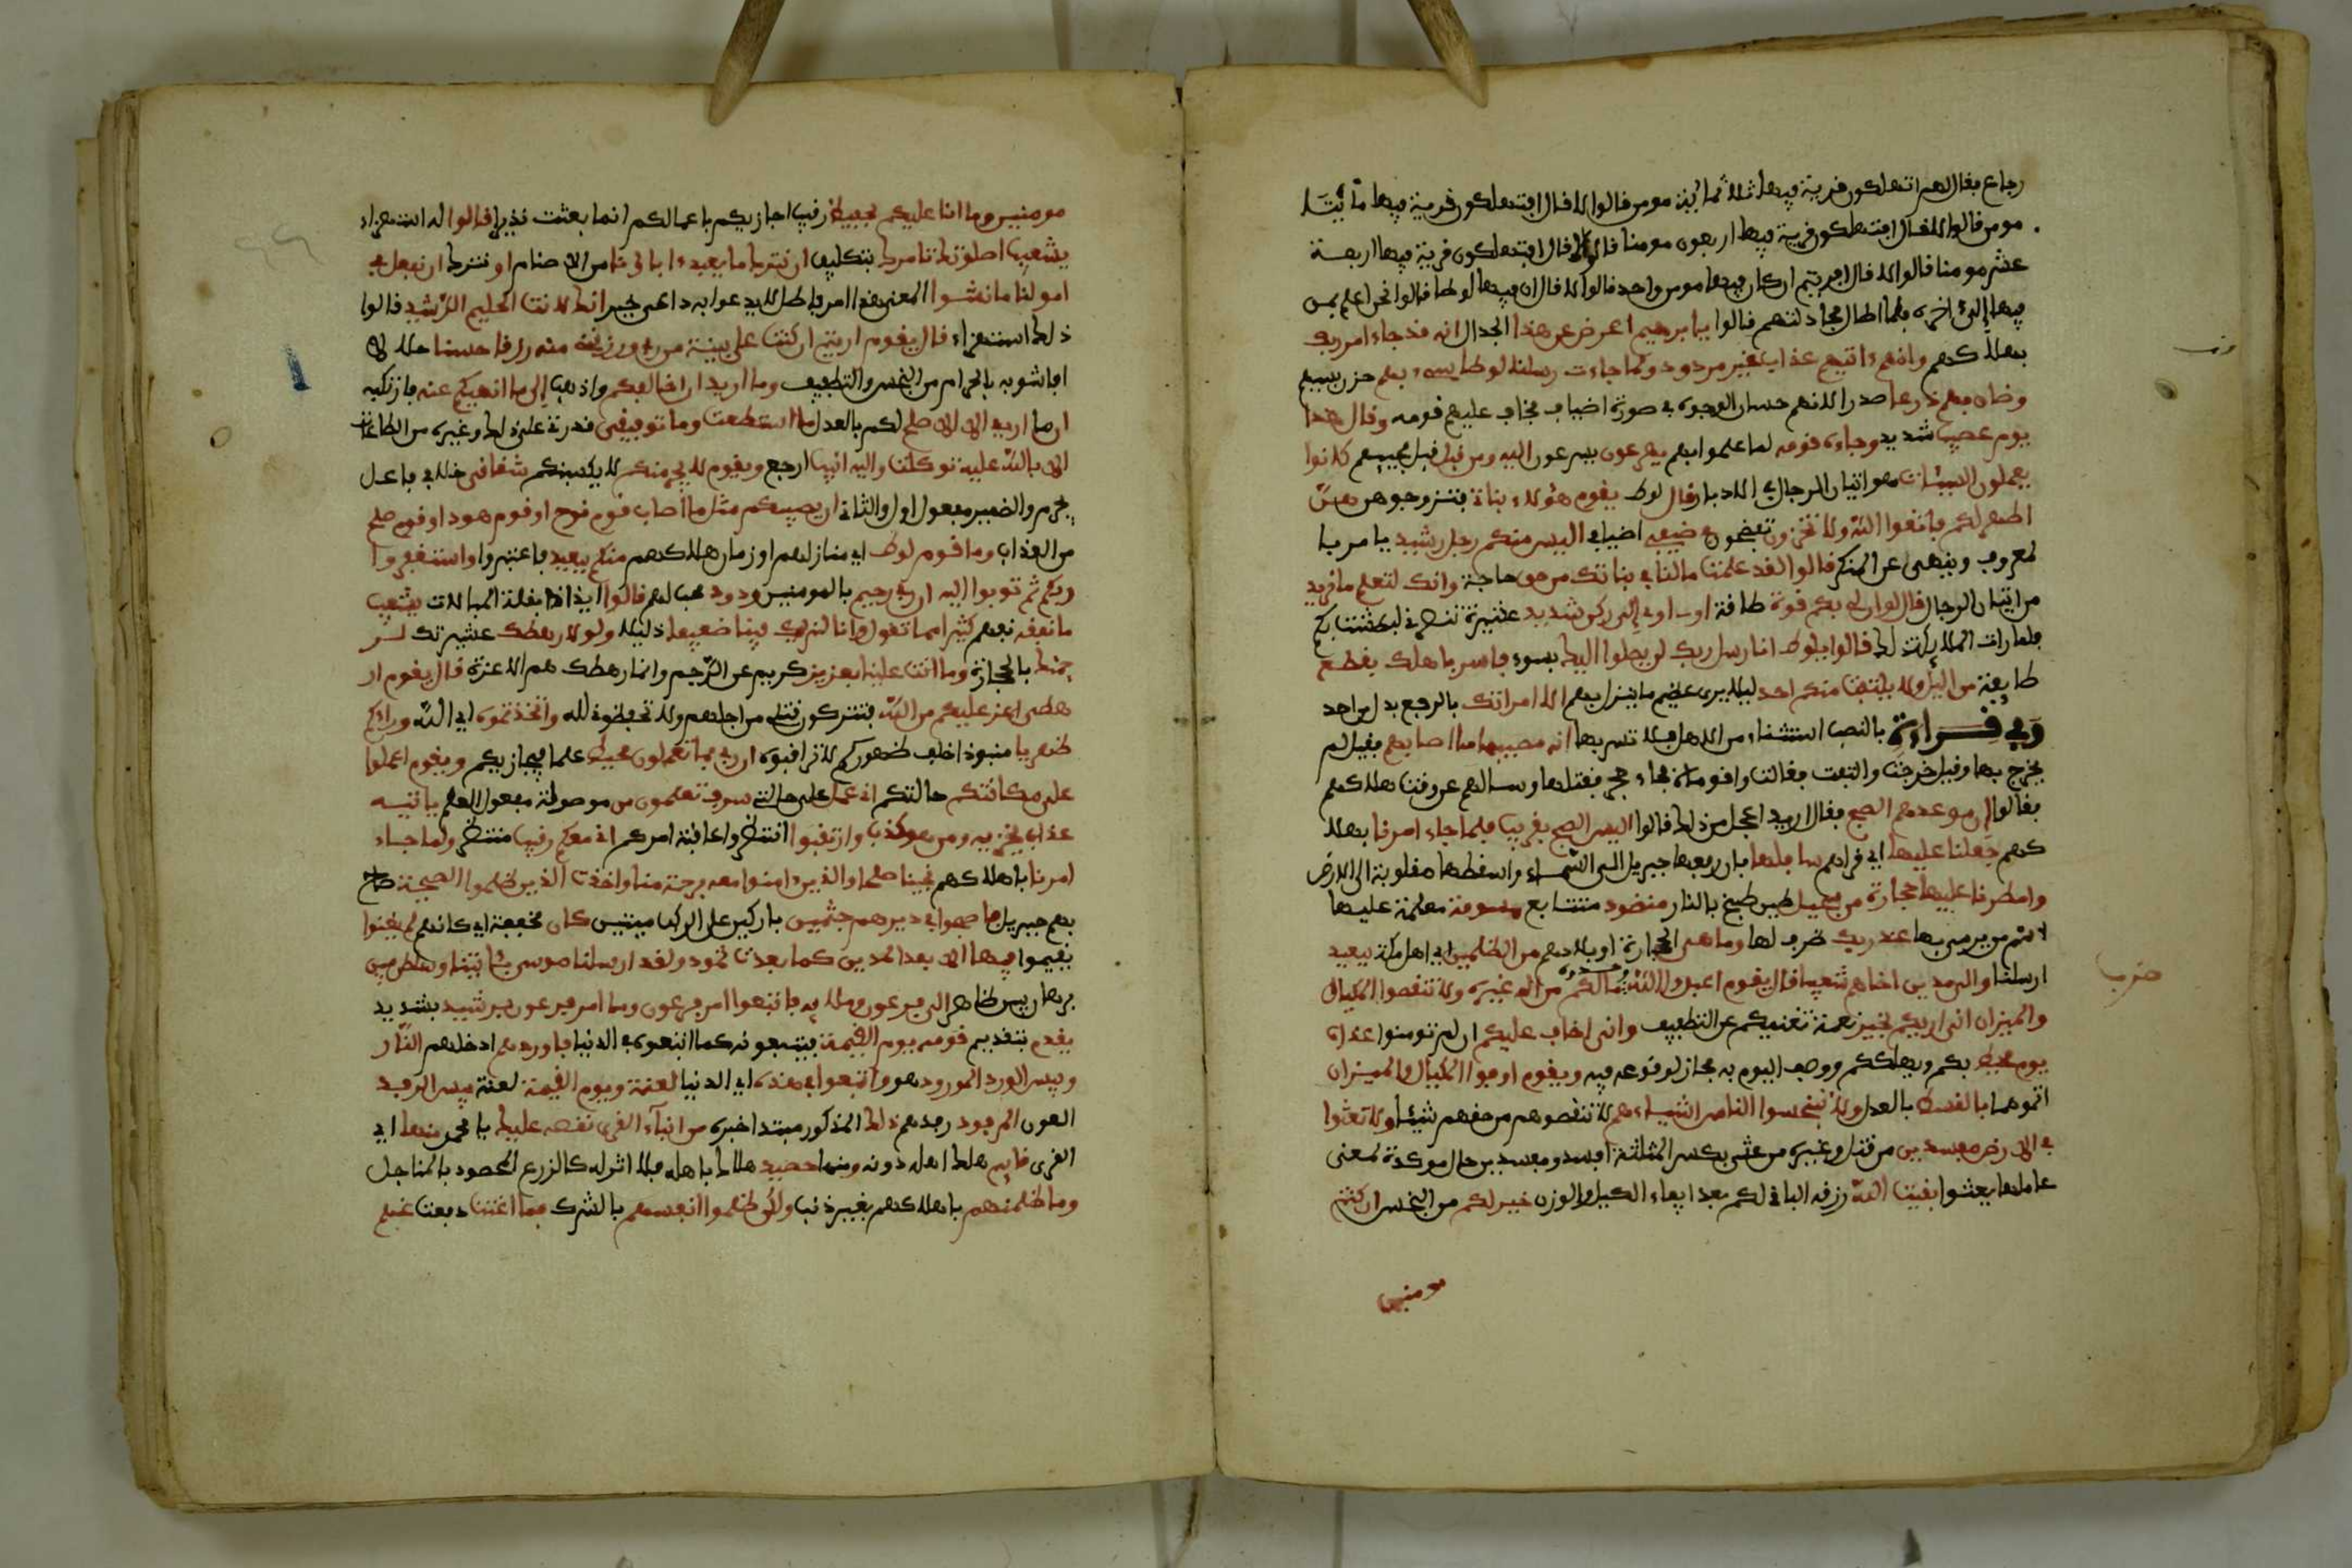 رجاع فقال لهم اتهلكون قرية فيها ثلثمائة مومن قالوا لا قال افتهلكون قرية فيها مايتا
مومن قالوا لا قال افتهلكون قرية فيها اربعون مومنا قالوا لا قال افتهلكون قرية فيها اربعة
عشر مومنا قالوا لا قال افريتم ان كان فيها مومن واحد قالوا لا قال ان فيها لوطا قالوا نحن اعلم بمن
فيها الى اخره فلما اطال مجادلتهم قالوا يابرهيم اعرض عن هذا الجدال انه قد جاء امر ربك
بهلاكهم وانهم ءاتيهم عذاب غير مردود ولما جاءت رسلنا لوطا سيء بهم حزن بسببهم
وضاق بهم ذرعا صدرا لانهم حسان الوجوه في صورة اضياف فخاف عليهم قومه وقال هذا
يوم عصيب شديد وجاءه قومه لما علموا بهم يهرعون يسرعون اليه ومن قبل قبل مجيهم كانوا
يعملون السيئات هي اتيان الرجال في الادبار قال لوط يقوم هؤلاء بناتي فتزوجوهن هن
اطهر لكم فاتقوا الله ولا تخزون تفضحون في ضيفي اضيافي اليس منكم رجل رشيد يامر با
لمعروف وينهى عن المنكر قالوا لقد علمت ما لنا في بناتك من حق حاجة وانك لتعلم ما نريد
من اتيان الرجال قال لو ان لي بكم قوة طاقة او ءاوي الى ركن شديد عشيرة تنصرني لبطشت بكم
فلما رات الملائكة ذلك قالوا يلوط انا رسل ربك لن يصلوا اليك بسوء فاسر باهلك بقطع
طايفة من اليل ولا يلتفت منكم احد ليلا يرى عظيم ما ينزل بهم الا امراتك بالرفع بدل من احد
وفي قراءة بالنصب استثناء من الاهل فلا تسر بها انه مصيبها ما اصابهم فقيل لم
يخرج بها وقيل خرجت والتفتت فقالت واقوماه فجاء حجر فقتلها وسالهم عن وقت هلاكهم
فقالوا ان موعدهم الصبح فقال اريد اعجل من ذلك قالوا اليس الصبح بقريب فلما جاء امرنا بهلا
كهم جعلنا عليها اي قراهم سافلها بان رفعها جبريل الى السماء واسقطها مقلوبة الى الارض
وامطرنا عليها حجارة من سجيل طين طبخ بالنار منضود متتابع مسومة معلمة عليها
اسم من يرمى بها عند ربك ظرف لها وما هي الحجارة او بلادهم من الظلمين اي اهل مكة ببعيد
ارسلنا والى مدين اخاهم شعيبا قال يقوم اعبدوا الله ما لكم من اله غيره ولا تنقصوا المكيال
والميزان اني اريكم بخير نعمة تغنيكم عن التطفيف واني اخاف عليكم ان لم تومنوا عذاب
يوم محيط بكم ويهلككم ووصف اليوم به مجاز لوقوعه فيه ويقوم اوفوا المكيال والميزان
اتموهما بالقسط بالعدل ولا تبخسوا الناس اشياءهم لا تنقصوهم من حقهم شيئا ولا تعثوا
في الارض مفسدين من قتل وغيره من عثي بكسر المثلثة افسد ومفسدين حال موكدة لمعنى
عاملها يعثوا بقيت الله رزقه الباقي لكم بعد ايفاء الكيل والوزن خير لكم من البخس ان كنتم
مومنين
مومنين وما انا عليكم بحفيظ رقيب اجازيكم باعمالكم انما بعثت نذيرا قالوا له استهزاء
يشعيب اصلوتك تامرك بتكليف ان نترك ما يعبد ءاباؤنا من الاصنام او نترك ان نفعل في
امولنا ما نشؤا المعنى هذا امر باطل لا يدعوا به داعي خير انك لانت الحليم الرشيد قالوا
ذلك استهزاء قال يقوم اريتم ان كنت على بينة من ربي ورزقني منه رزقا حسنا حلالا
افاشوبه بالحرام من البخس والتطفيف وما اريد ان اخالفكم واذهب الى ما انهيكم عنه فارتكبه
ان ما اريد الا الاصلح لكم بالعدل ما استطعت وما توفيقي قدرتي على ذلك وغيره من الطاعات
الا بالله عليه توكلت واليه انيب ارجع ويقوم لا يجرمنكم لا يكسبنكم شقاقي خلافي فاعل
يجرم والضمير مفعول اول والثاني ان يصيبكم مثل ما اصاب قوم نوح او قوم هود او قوم صلح
من العذاب وما قوم لوط اي منازلهم او زمان هلاكهم منكم ببعيد فاعتبروا واستغفروا
ربكم ثم توبوا اليه ان ربي رحيم بالمومنين ودود محب لهم قالوا ايذانا بقلة المبالات يشعيب
ما نفقه نفهم كثيرا مما تقول وانا لنريك فينا ضعيفا ذليلا ولولا رهطك عشيرتك لر
جمنك بالحجارة وما انت علينا بعزيز كريم عن الرجم وانما رهطك هم الاعزة قال يقوم ار
هطي اعز عليكم من الله فتتركون قتلي من اجلهم ولا تحفظوني لله واتخذتموه اي الله وراءكم
ظهريا منبوذا خلف ظهوركم لا تراقبوه ان ربي بما تعملون محيط علما فيجازيكم ويقوم اعملوا
على مكانتكم حالتكم اني عمل على حالتي سوف تعلمون من موصولة مفعول العلم ياتيه
عذاب يخزيه ومن هو كذب وارتقبوا انتظروا عاقبة امركم اني معكم رقيب منتظر ولما جاء
امرنا باهلاكهم نجينا شعيبا والذين ءامنوا معه برحمة منا واخذت الذين ظلموا الصيحة صاح
بهم جبريل فاصبحوا في ديرهم جثمين باركين على الركب ميتين كان مخففة اي كانهم لم يغنوا
يقيموا فيها الا بعدا لمدين كما بعدت ثمود ولقد ارسلنا موسى بئايتنا وسلطن مبين
برهان بين ظاهر الى فرعون وملايه فاتبعوا امر فرعون وما امر فرعون برشيد بشديد
يقدم يتقدم قومه يوم القيمة فيتبعونه كما اتبعوه في الدنيا فاوردهم ادخلهم النار
وبيس الورد المورود هي واتبعوا في هذه اي الدنيا لعنة ويوم القيمة لعنة بيس الرفد
العون المرفود رفدهم ذلك المذكور مبتدا خبره من انباء القرى نقصه عليك يا محمد منها اي
القرى قايم هلك اهله دونه ومنها حصيد هلك باهله فلا اثر له كالزرع المحصود بالمناجل
وما ظلمنهم باهلاكهم بغير ذنب ولكن ظلموا انفسهم بالشرك فما اغنت دفعت عنهم